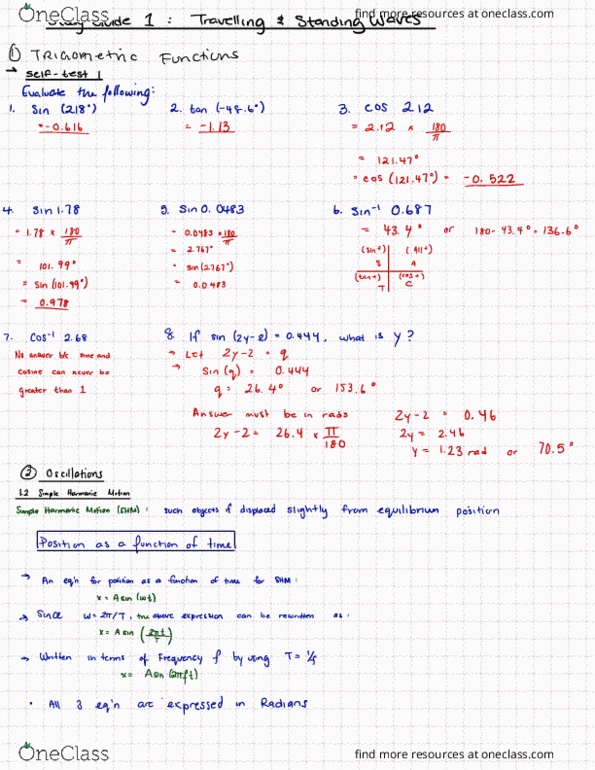 OneClass find more resources at oneclass.com
Study Guide 1 : Travelling & Standing Waves
① TRIGOMETRIC FUNCTIONS
→ Self-test 1
Evaluate the following:
1. Sin (218°) 2. tan (-48.6°) 3. cos 2.12
= -0.616 = -1.13 = 2.12 × 180/π
= 121.47°
= cos (121.47°) = -0.522
4. Sin 1.78 5. Sin 0.0483 6. Sin⁻¹ 0.687
= 1.78 × 180/π = 0.0483 × 180/π = 43.4° or 180-43.4° = 136.6°
= 101.99° = 2.767° (sin+) (All+)
= Sin (101.99°) = sin (2.767°) S A
= 0.978 = 0.0483 (tan+) (cos+)
T C
7. Cos⁻¹ 2.68 8. If sin (2y-2) = 0.444, what is y?
No answer b/c sine and → Let 2y-2 = q
cosine can never be → Sin (q) = 0.444
greater than 1 q = 26.4° or 153.6°
Answer must be in rads 2y-2 = 0.46
2y-2 = 26.4 × π/180 2y = 2.46
y = 1.23 rad or 70.5°
② Oscillations
1.2 Simple Harmonic Motion
Simple Harmonic Motion (SHM) : such objects if displaced slightly from equilibrium position
Position as a function of time
→ An eq'n for position as a function of time for SHM:
x = A sin (ωt)
→ Since ω = 2π/T, the above expression can be rewritten as:
x = A sin (2πt/T)
→ Written in terms of frequency f by using T = 1/f
x = A sin (2πft)
• All 3 eq'n are expressed in Radians
OneClass find more resources at oneclass.com